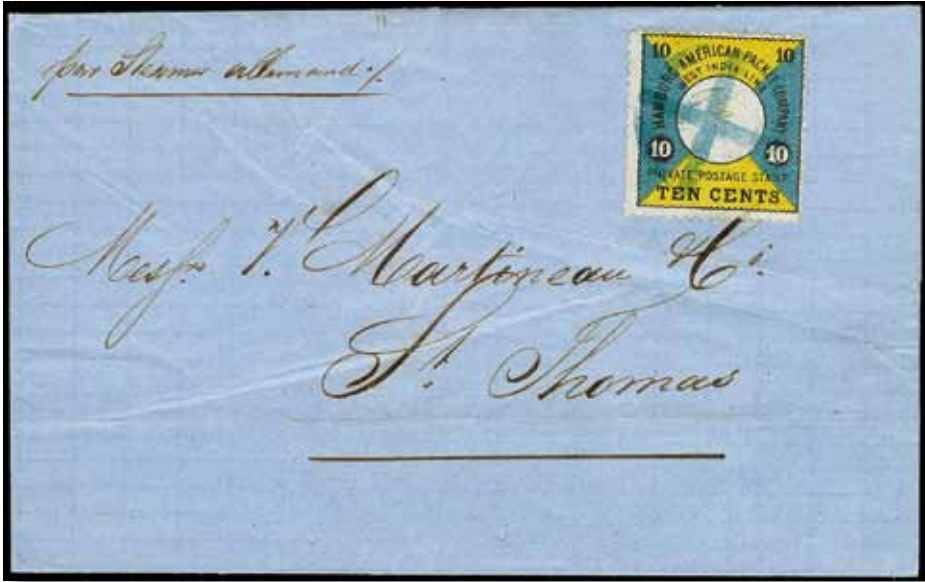 par Steamer allemand ./.
10 10
HAMBURG AMERICAN PACKET COMPANY
WEST INDIA LINE
10 10
PRIVATE POSTAGE STAMP
TEN CENTS
Messrs. Martineau & Ci.
St. Thomas